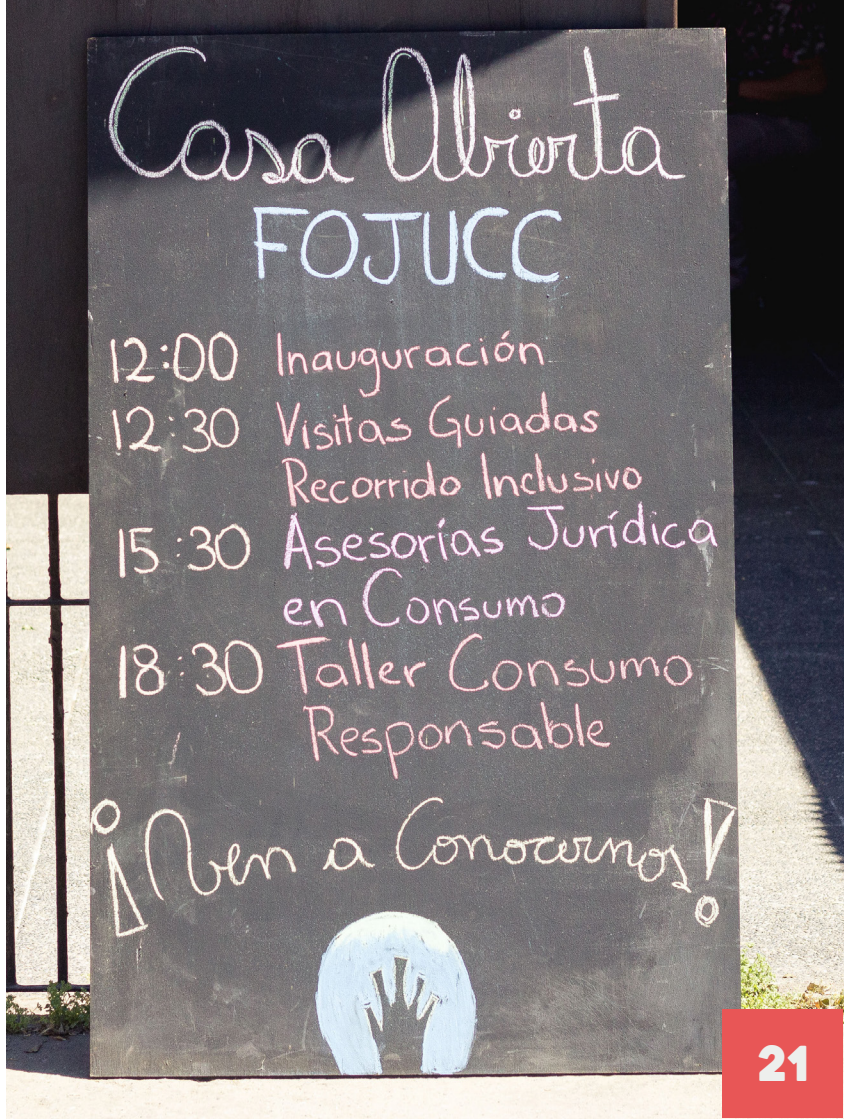 Casa Abierta
FOJUCC
12:00 Inauguración
12:30 Visitas Guiadas
Recorrido Inclusivo
15:30 Asesorías Jurídica
en Consumo
18:30 Taller Consumo
Responsable
¡Ven a Conocernos!
21